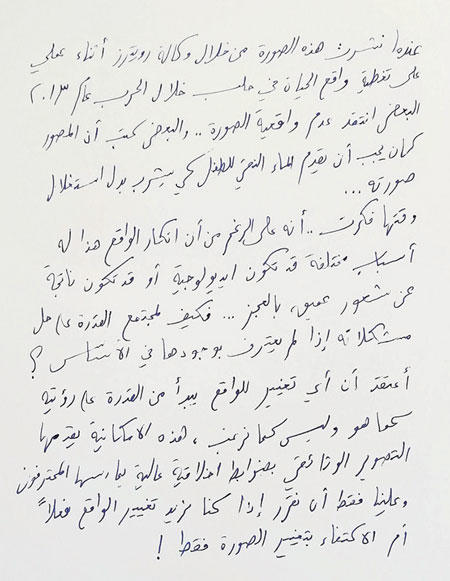 عندما نشرت هذه الصورة من خلال وكالة رويترز أثناء عملي
على تغطية واقع الحياة في حلب خلال الحرب عام ٢٠١٣
البعض انتقد عدم واقعية الصورة .. والبعض كتب أن المصور
كان يجب أن يقدم الماء النقي للطفل كي يشرب بدل استغلال
صورته ...
وقتها فكرت .. أنه على الرغم من أن انكار الواقع هذا له
أسباب مختلفة قد تكون ايديولوجية أو قد تكون ناتجة
عن شعور عميق بالعجز ... فكيف لمجتمع القدرة على حل
مشكلاته إذا لم يعترف بوجودها في الأساس ؟
أعتقد أن أي تغيير للواقع يبدأ من القدرة على رؤيته
كما هو وليس كما نرغب ، هذه الامكانية يقدمها
التصوير الوثائقي بضوابط اخلاقية عالية يمارسها المحترفون
وعلينا فقط أن نقرر إذا كنا نريد تغيير الواقع فعلاً
أم الاكتفاء بتغيير الصورة فقط !